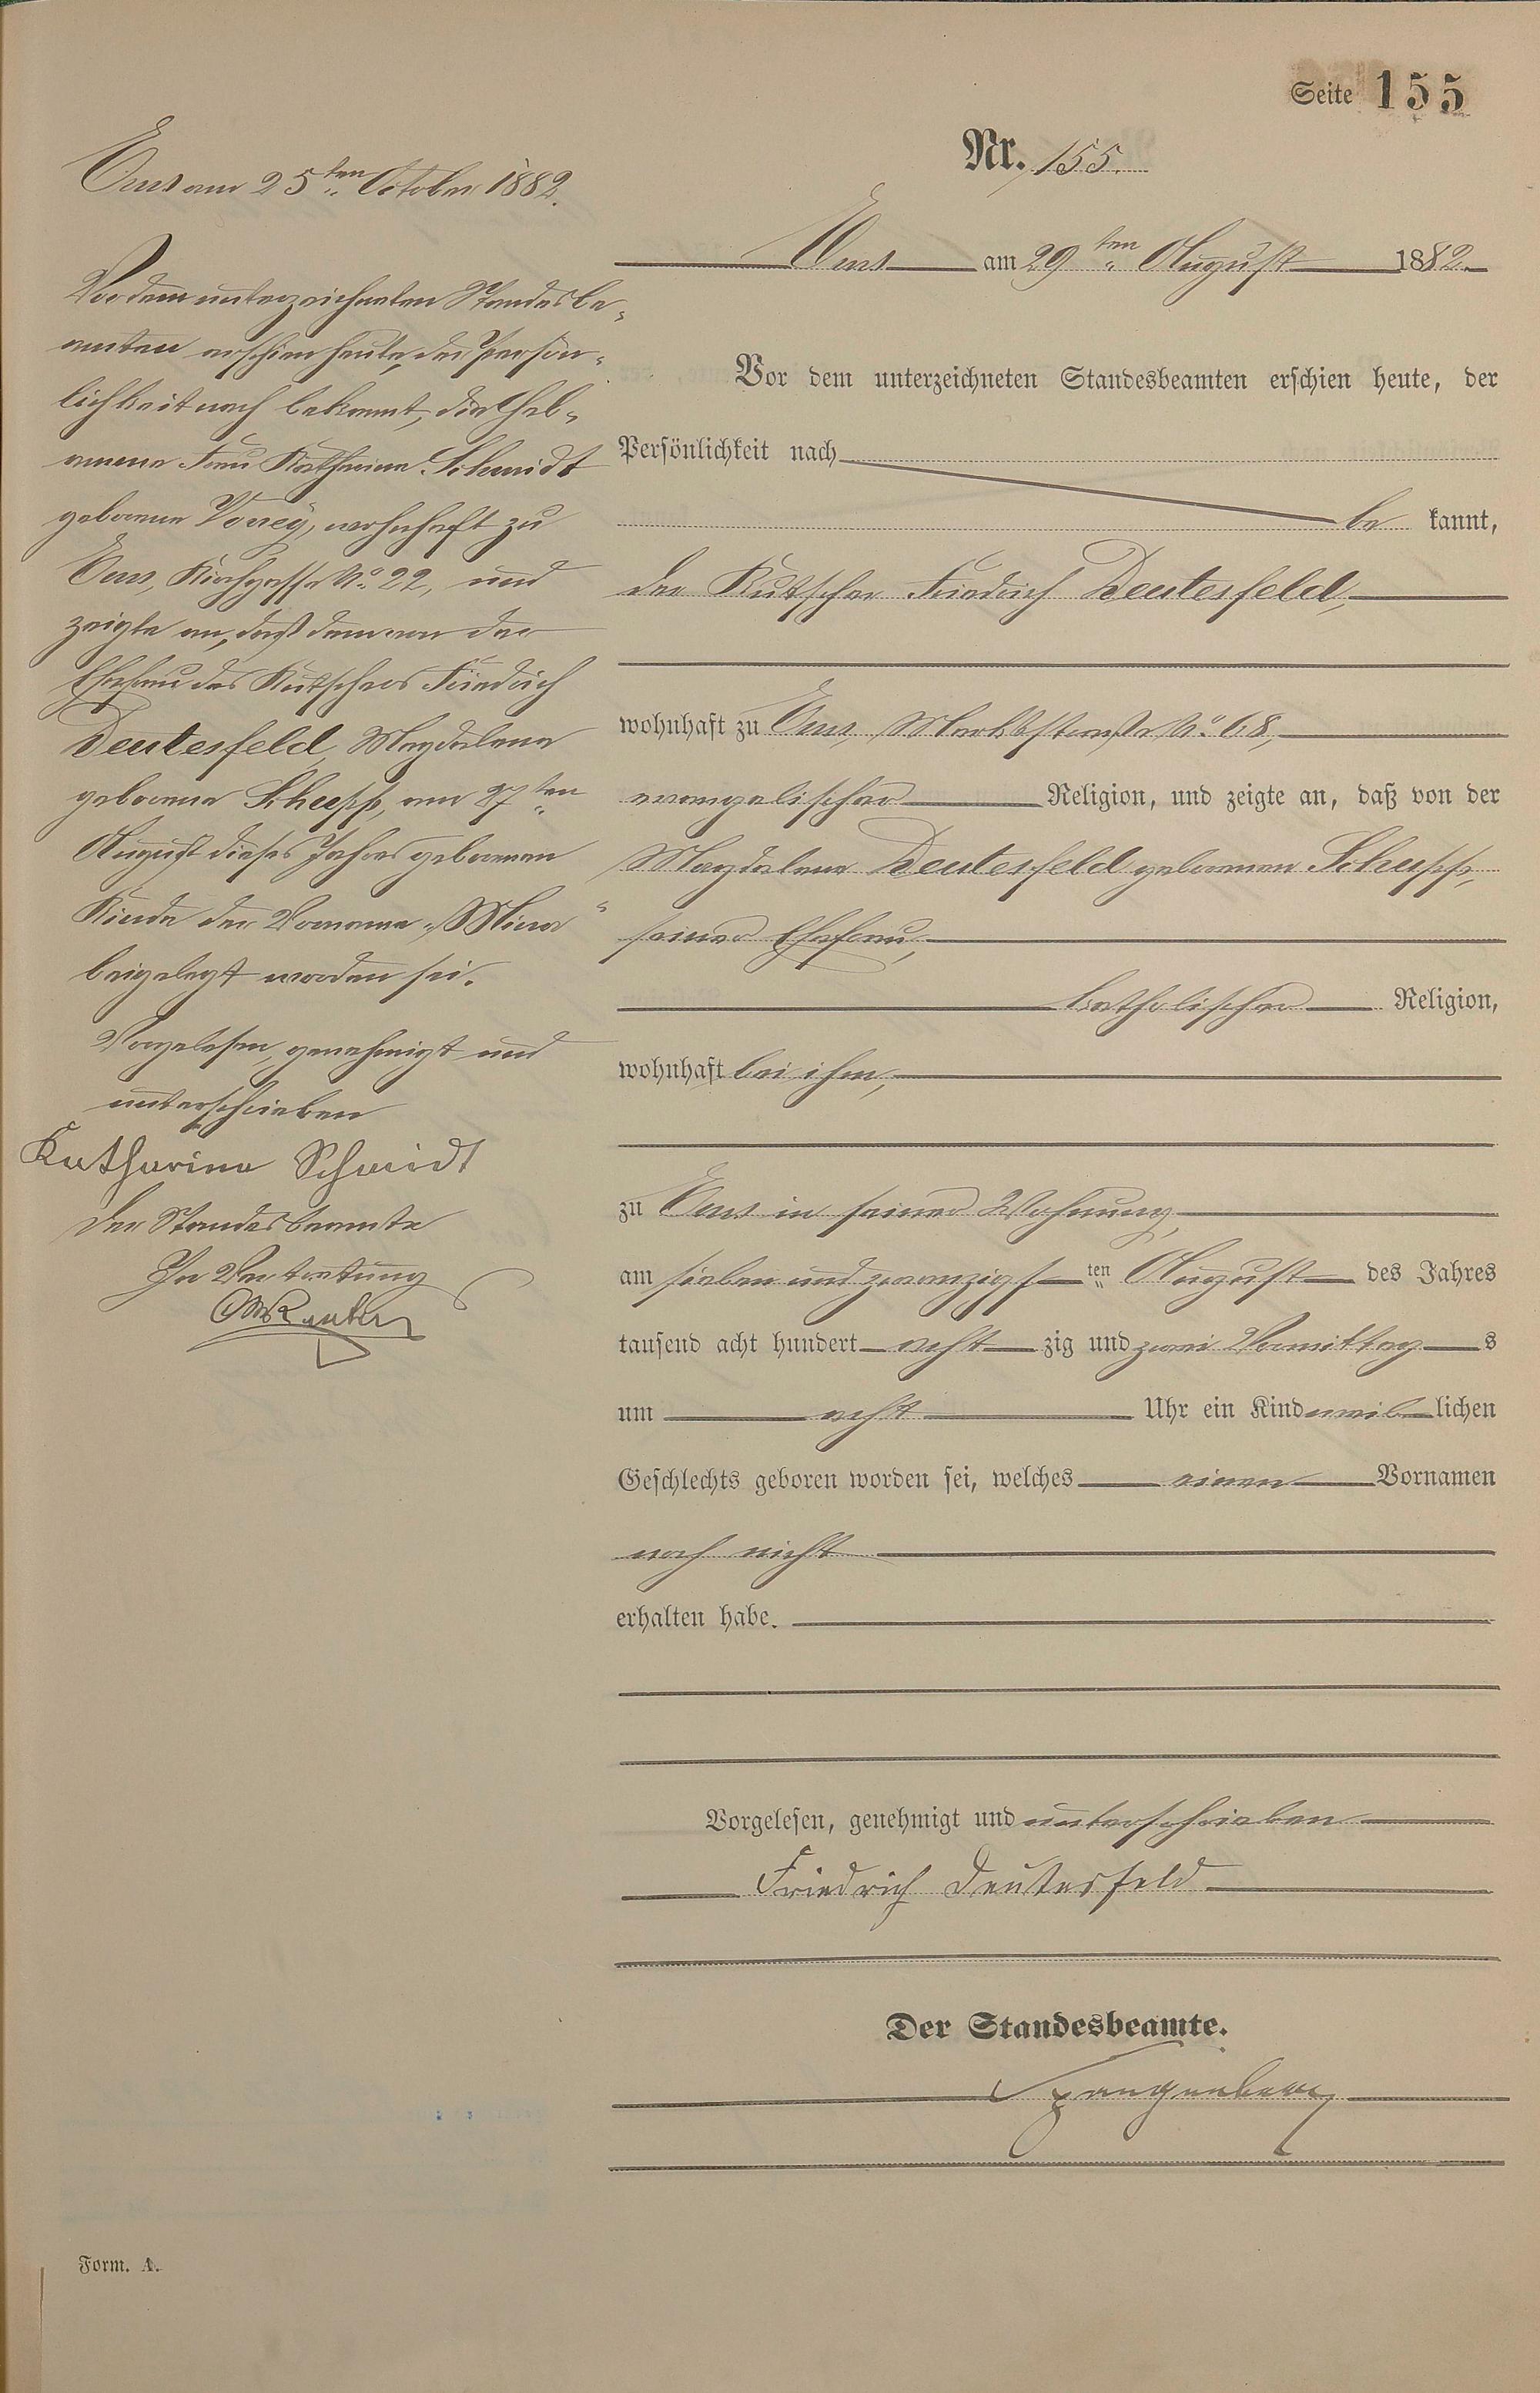 Seite 155
Nr. 155.
Ems am 29ten August 1882.
Vor dem unterzeichneten Standesbeamten erschien heute, der
Persönlichkeit nach
be kannt,
der Kutscher Friedrich Deutesfeld,
wohnhaft zu Ems, Marktstraße No. 68,
evangelischer Religion, und zeigte an, daß von der
Magdalena Deutesfeld geborenen Schupp,
seiner Ehefrau,
katholischer Religion,
wohnhaft bei ihm,
zu Ems in seiner Wohnung,
am sieben und zwanzigsten August des Jahres
tausend acht hundert acht zig und zwei Vormittags
um acht Uhr ein Kind weiblichen
Geschlechts geboren worden sei, welches einen Vornamen
noch nicht
erhalten habe.
Vorgelesen, genehmigt und unterschrieben
Friedrich Deutesfeld
Der Standesbeamte.
Spangenberg
Ems am 25ten October 1882.
Vor dem unterzeichneten Standesbe-
amten erschien heute, der Persön-
lichkeit nach bekannt, die Heb-
amme Frau Katharina Schmidt
geborene Vorrey, wohnhaft zu
Ems, Kirchgasse No. 22, und
zeigte an, daß dem von der
Ehefrau des Kutschers Friedrich
Deutesfeld, Magdalena
geborene Schupp, am 27ten
August dieses Jahres geborenen
Kinde der Vorname „Mina“
beigelegt worden sei.
Vorgelesen, genehmigt und
unterschrieben
Katharina Schmidt
Der Standesbeamte
In Vertretung
Form. A.